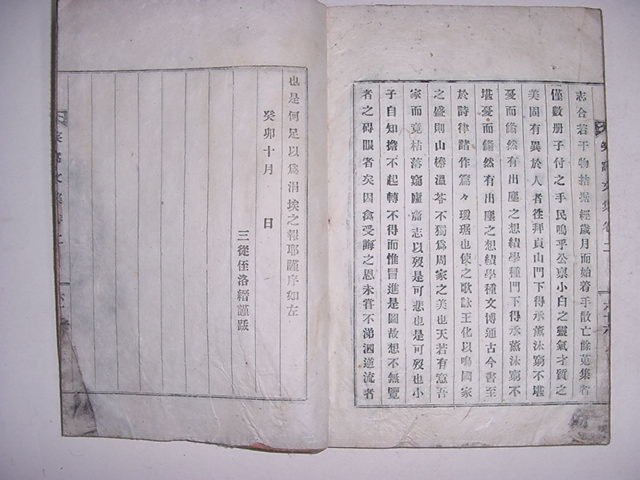 志合若干物搶據經歲月而始着手散亡餘蒐集者
僅數册子付之手民嗚乎公稟小白之靈氣才質之
美固有異於人者徃拜貞山門下得承薰沐窮不堪
憂而翛然有出塵之想績學種門下得承薰沐窮不
堪憂而翛然有出塵之想績學種文博通古今書至
於詩律諸作篇々瓊琚也使之歌詠王化以鳴國家
之盛則山榛溫苓不獨爲周家之美也天若有意吾
家而竟枯落窮廬齎志以歿是可悲也是可歿也小
子自知擔不起轉不得而惟冒進是圖故想不無覽
者之碍眼者矣因念受誨之恩未甞不涕泗道流者
也是何足以爲涓埃之報耶謹序如左
癸卯十月 日
三從侄洛縉謹跋
文集卷二